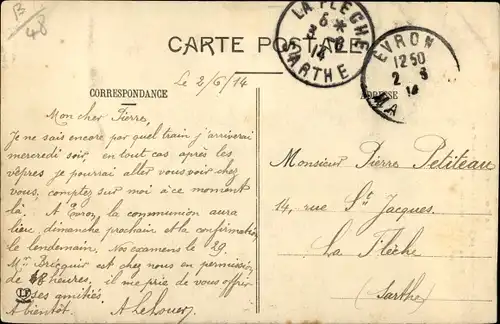 B
48
CARTE POSTALE
LA FLÈCHE
6 *
3 - 6
14
SARTHE
EVRON
12 50
2 - 6
14
MA
CORRESPONDANCE
ADRESSE
Le 2/6/14
Mon cher Pierre,
Je ne sais encore par quel train j'arriverai
mercredi soir, en tout cas après les
vêpres je pourrai aller vous voir chez
vous, comptez sur moi à ce moment
là. A Evron la communion aura
lieu, dimanche prochain et la confirmation
le lendemain. Nos examens le 29.
Mr. est chez nous en permission
de 48 heures, il me prie de vous offrir
ses amitiés.
A bientôt.
Monsieur Pierre Petiteau
14, rue St. Jacques.
La Flèche
(Sarthe)